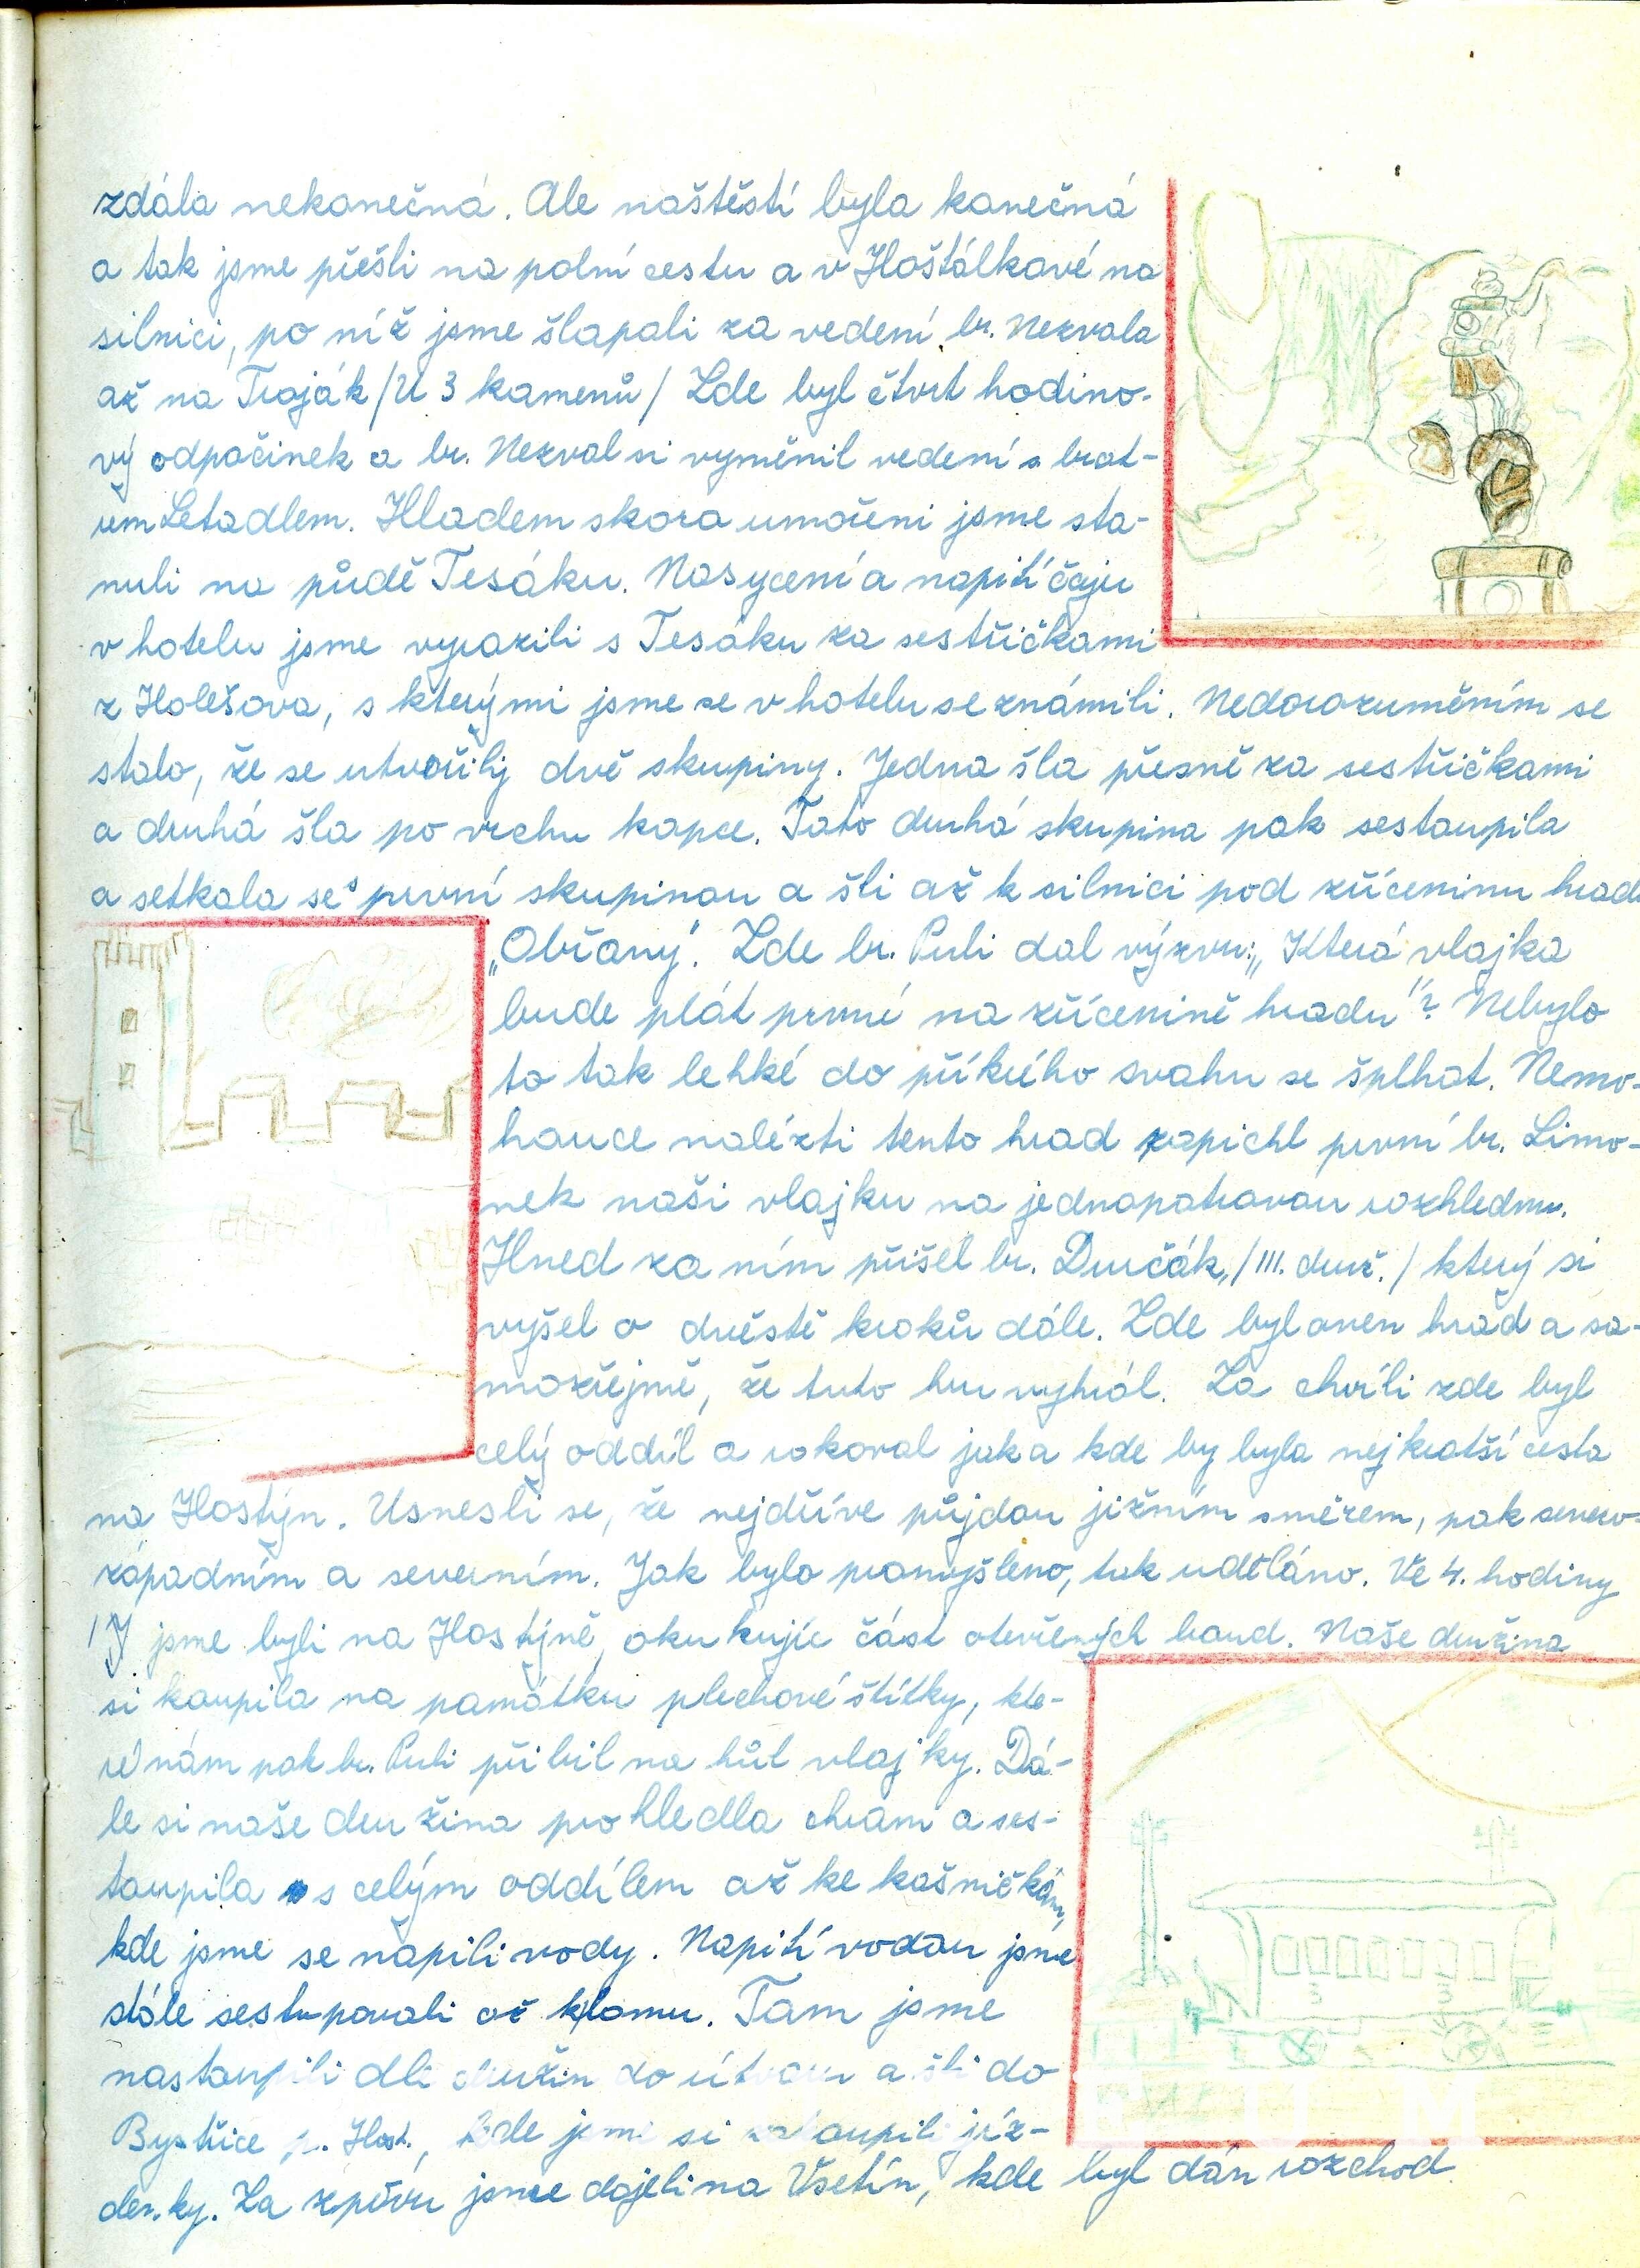 zdála nekonečná. Ale naštěstí byla konečná
a tak jsme přešli na polní cestu a v Hoštálkové na
silnici, po níž jsme šlapali za vedení br. Nezvala
až na Troják /U 3 kamenů/ Zde byl čtvrt hodino-
vý odpočinek a br. Nezval si vyměnil vedení s brat-
rem Letadlem. Hladem skoro umořeni jsme sta-
nuli na půdě Tesáku. Nasyceni a napití čaju
v hotelu jsme vyrazili s Tesáku za sestřičkami
z Holešova, s kterými jsme se v hotelu seznámili. Nedorozuměním se
stalo, že se utvořily dvě skupiny. Jedna šla přesně za sestřičkami
a druhá šla po vrchu kopce. Tato druhá skupina pak sestoupila
a setkala se s první skupinou a šli až k silnici pod zříceninu hradu
„Obřany". Zde br. Puli dal výzvu: „Která vlajka
bude plát první na zřícenině hradu"? Nebylo
to tak lehké do příkrého svahu se šplhat. Nemo-
houce nalézti tento hrad zapichl první br. Limo-
nek naši vlajku na jednopatrovou rozhlednu.
Hned za ním přišel br. Durčák, /III. druž./ který si
vyšel o dvěstě kroků dále. Zde byl onen hrad a sa-
mozřejmě, že tuto hru vyhrál. Za chvíli zde byl
celý oddíl a rokoval jak a kde by byla nejkratší cesta
na Hostýn. Usnesli se, že nejdříve půjdou jižním směrem, pak severo-
západním a severním. Jak bylo promyšleno, tak uděláno. Ve 4. hodiny
jsme byli na Hostýně, okukujíc část otevřených boud. Naše družina
si koupila na památku plechové štítky, kte-
ré nám pak br. Puli přibil na hůl vlajky. Dá-
le si naše družina prohledla chram a ses-
toupila s celým oddílem až ke kašničkám,
kde jsme se napili vody. Napití vodou jsme
stále sestupovali až k lomu. Tam jsme
nastoupili dli družin do útvaru a šli do
Bystřice p. Host., kde jsme si zakoupili jíz-
denky. Za zpěvu jsme dojeli na Vsetín, kde byl dán rozchod